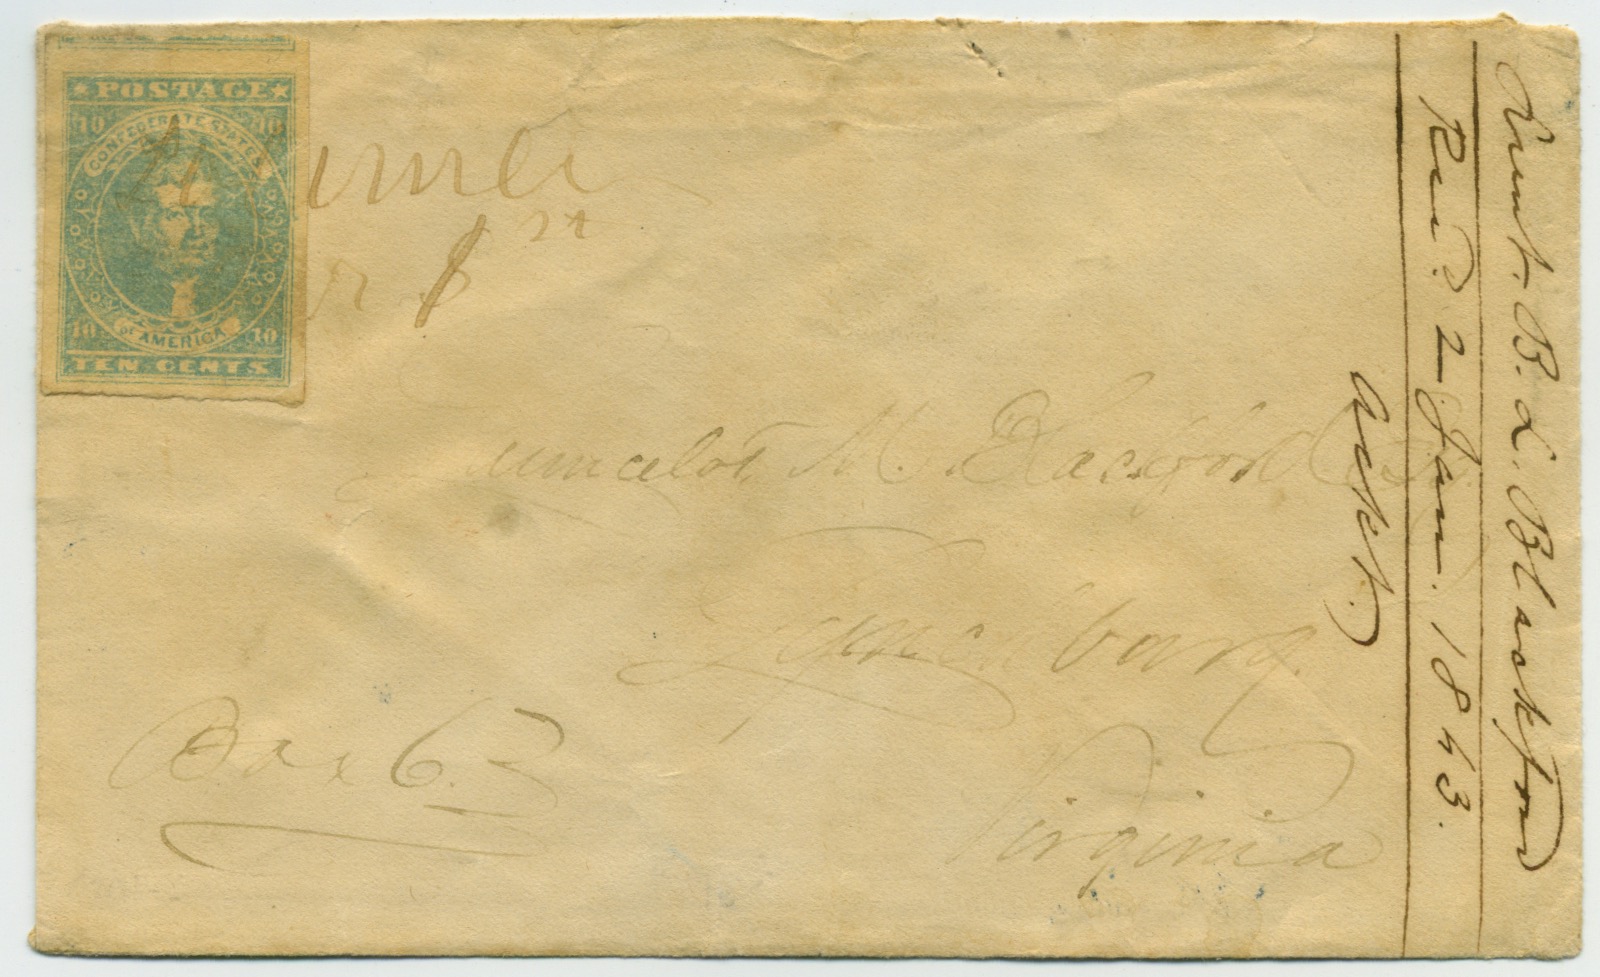 POSTAGE
10 10
CONFEDERATE STATES
OF AMERICA
10 10
TEN CENTS
M. Blackford
Lynchburg
Virginia
Box 63
Lieut. B. L. Blackford
Rec'd 2 Jan. 1863.